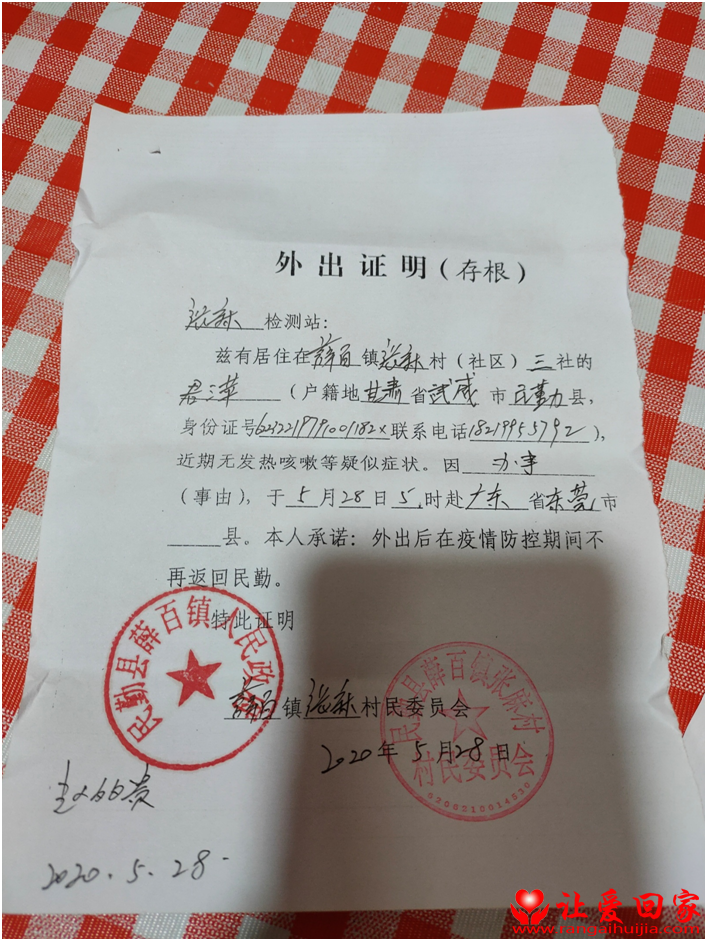 外出证明(存根)
检测站：
兹有居住在薛百镇张麻村（社区）三社的
（户籍地甘肃省武威市民勤县，
身份证号 联系电话18219955792），
近期无发热咳嗽等疑似症状。因办事
（事由），于5月28日5时赴广东省东莞市
县。本人承诺：外出后在疫情防控期间不
再返回民勤。
特此证明
民勤县薛百镇人民政府
薛百镇张麻村民委员会
民勤县薛百镇张麻村
村民委员会
2020年5月28日
2020.5.28.
让爱回家
www.rangaihuijia.com